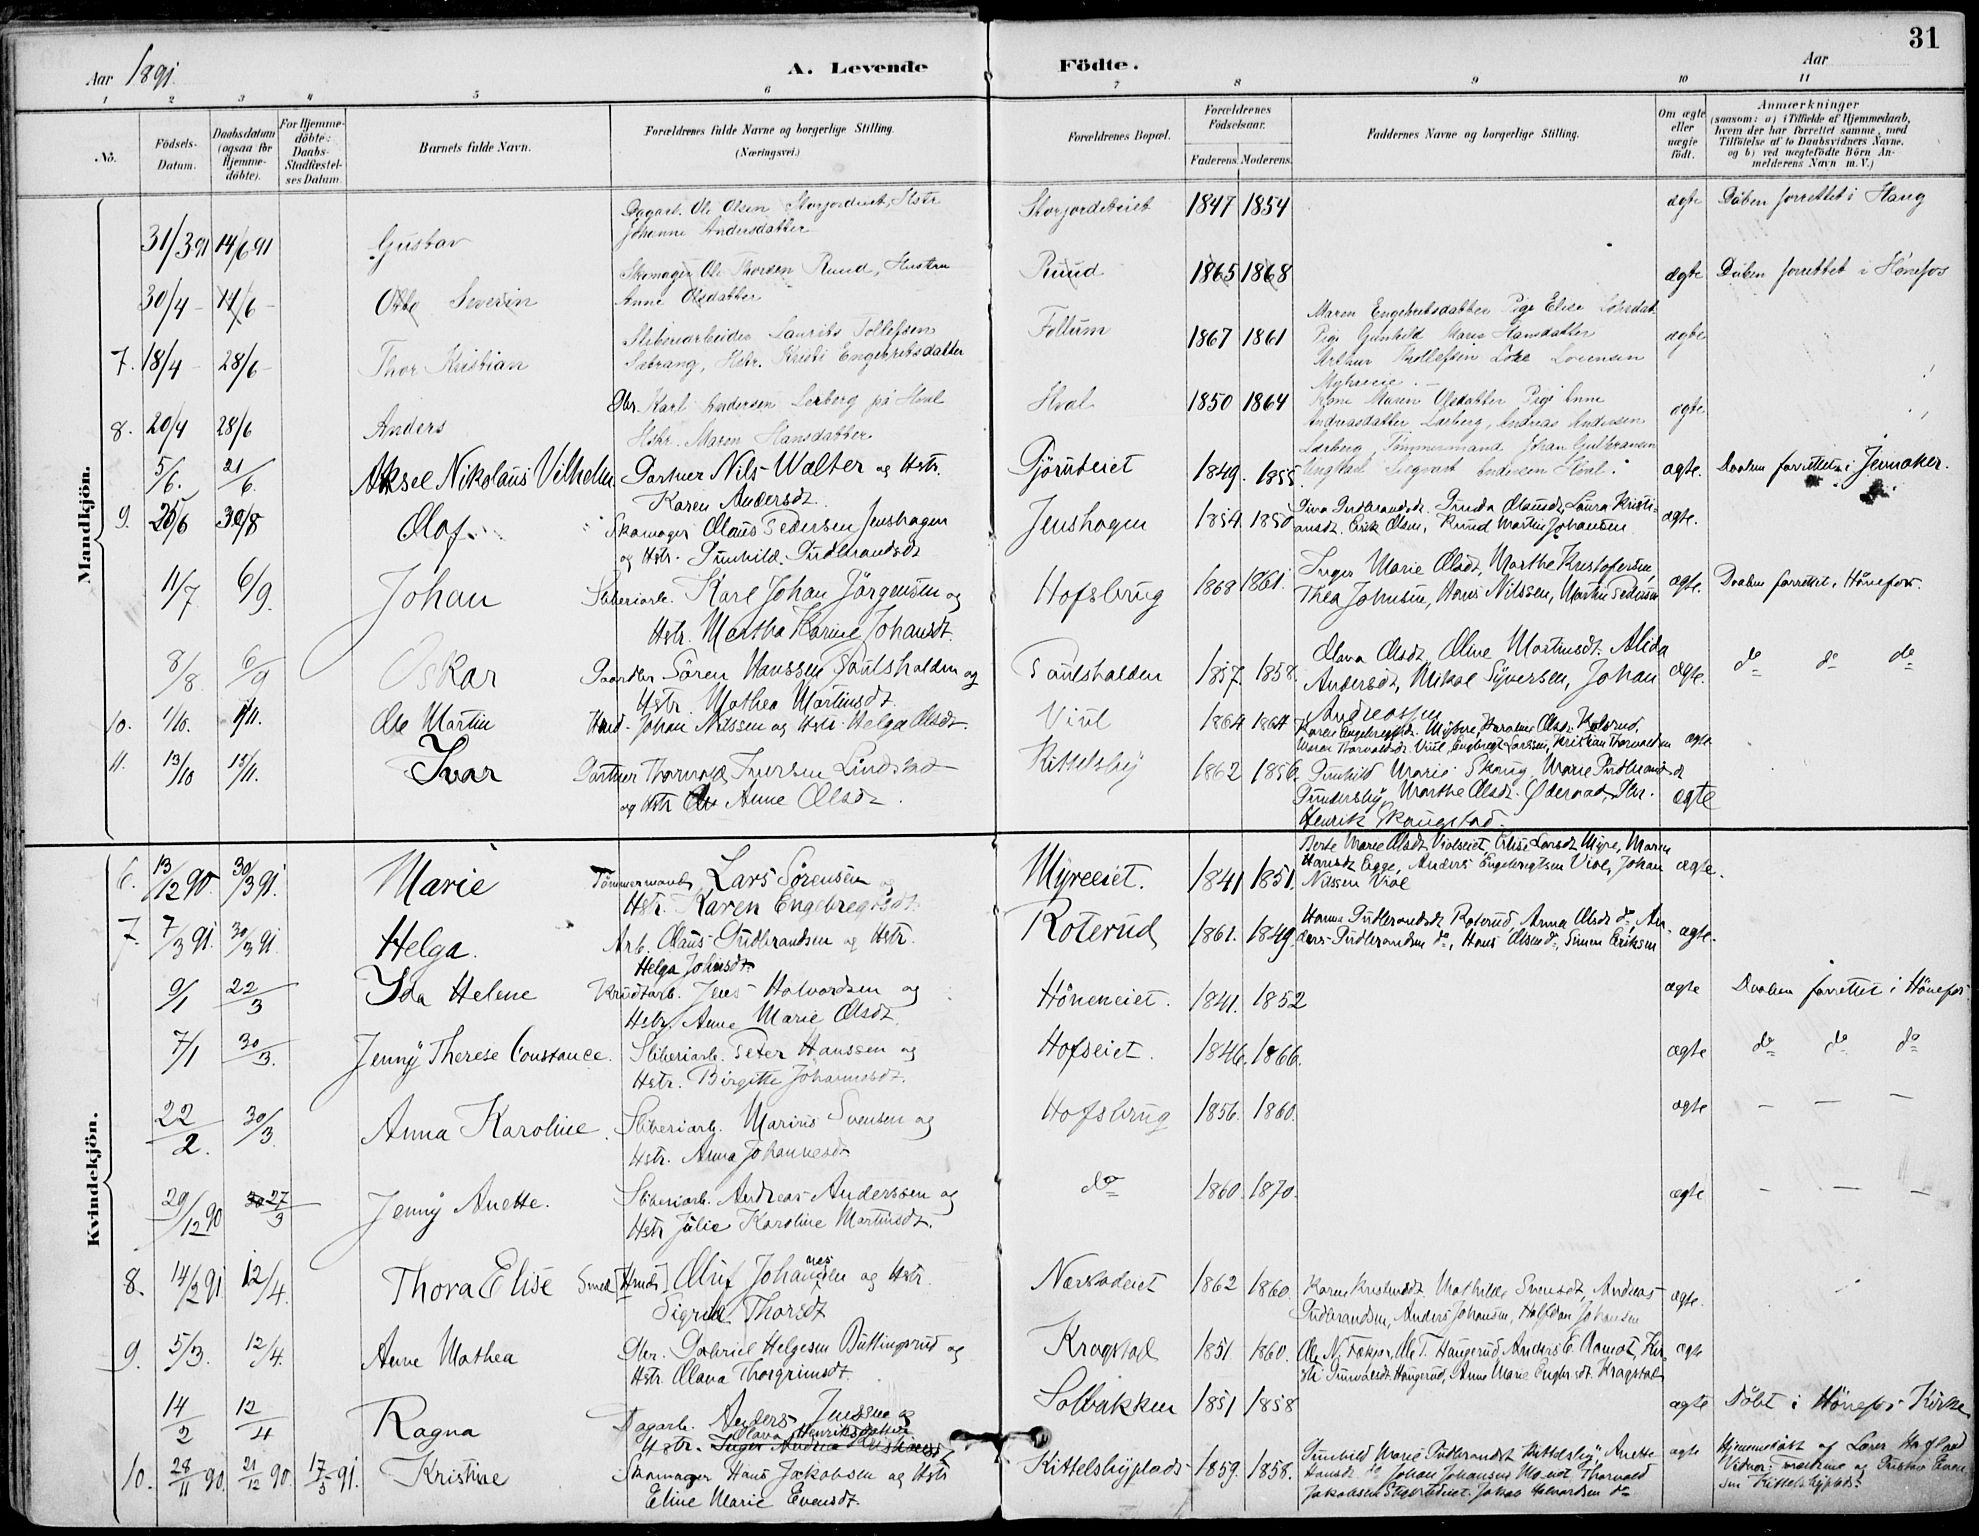 31
Aar 1891.
A. Levende Födte.
Aar
1 2 3 4 5 6 7 8 9 10 11
No.
Födsels-Datum.
Daabsdatum (ogsaa for Hjemme-döbte).
For Hjemme-döbte: Daabs-Stadfæstel-ses Datum.
Barnets fulde Navn.
Forældrenes fulde Navne og borgerlige Stilling.
(Næringsvei.)
Forældrenes Bopæl.
Forældrenes Födselsaar.
Faderens. Moderens.
Faddernes Navne og borgerlige Stilling.
Om ægte eller uægte født.
Anmærkninger
(saasom: a) i Tilfælde af Hjemmedaab, hvem der har forrettet samme, med Tilföielse af to Daabsvidners Navne, og b) ved uægtefödte Börn An-melderens Navn m. V.)
Mandkjön.
31/3 91 14/6 91 Gustav
Dagarb. Ole Olsen Storjordeiet, Hstr
Johanne Andersdatter
Storjordeteiet 1847 1854 ægte Daben forrettet i Haug
30/4 - 14/6 - Otto Severin
Skomager Ole Thorsen Ruud, Hustru
Anne Olsdatter
Ruud 1865 1868 ægte Daben forrettet i Hönefos
7. 18/4 - 28/6 - Thor Kristian
Sliberiarbeider Laurits Tollefsen
Sætrang, Hstr. Kristi Engebretsdatter
Follum 1867 1861
Maren Engebretsdatter Pige Elise Larsdat.
Pige Gunhild Marie Hansdatter
Arthur Thollefsen Lore Sorensen
Myhreeie. -
ægte
8. 20/4 28/6 Anders
Gbr. Karl Andersen Lerberg på Hval
Hstr. Maren Hansdatter
Hval 1850 1864
Kone Maren Olsdatter Pige Anne
Andreasdatter Lerberg, Andreas Andersen
Lerberg, Tömmermand Johan Gulbransen
Sigvart Andersen Hval.
ægte
5/6. 21/6. Aksel Nikolaus Vilhelm
Gartner Nils Walter og Hstr.
Karen Andersdt.
Gjöruteiet 1849. 1855 ægte. Daaben forrettet i Jevnaker.
9. 25/6 30/8 Olaf
Skomager Olaus Pedersen Jenshagen
og Hstr. Gunhild Gudbrandsdt
Jenshagen 1854. 1850
Gudbrandsdt. Gunda Olausdt, Laura Kristi-
ansdt. Erik Olsen, Ruud Martin Johansen
ægte.
11/7 6/9. Johan
Sliberiarb. Karl Johan Jörgensen og
Hstr. Martha Karine Johansdt.
Hofsbrug 1868 1861.
Inger Marie Olsdt, Marthe Kristofersen,
Thea Johnsen, Hans Nilssen, Martin Pedersen
ægte. Daaben forrettet i Hönefos.
8/8. 6/9 Oskar
Gaardbr Sören Hanssen Paulshalden og
Hstr. Mathea Martinsdt.
Paulshalden 1857. 1858.
Olava Olsdt, Oline Martinsdt. Alida
Andersdt, Mikal Syversen, Johan
Andreassen
ægte. do do do
10. 1/10. 1/11. Ole Martin
Hmd. Johan Nilssen og Hstr. Helga Olsdt.
Viul 1864 1864
Karen Engebregtsdt. Myhre, Karoline Olsdt. Kolsrud,
Maren Thorvaldsdt. Viul, Engbregt Larssen, Kristian Thorvaldsen
ægte
11. 13/10 15/11. Ivar
Gartner Thorvald Iversen Lindstad
og Hstr Anne Olsdt.
Kittelsby 1862 1856.
Gunhild Marie Skaug, Marie Gudbrandsdt
Gundersby, Marthe Olsdt. Öderaad, Gbr.
Henrik Skaugstad.
ægte
Kvindekjön.
6. 13/12 90. 30/3 91. Marie
Tömmermand Lars Sörensen og
Hstr. Karen Engebregtsdt.
Myreeiet. 1841 1851.
Berte Marie Olsdt. Violseiet, Elise Larsdt Myre, Maren
Hansdt Egge, Anders Engebregtsen Viol, Johan
Nilssen Viol
ægte.
7. 7/3 91. 30/3 91. Helga.
Arb. Olaus Gudbrandsen og Hstr.
Helga Johnsdt.
Roterud 1861. 1849.
Hanna Gudbrandsdt Roterud Anna Olsdt do, An-
ders Gudbrandsen do, Hans Olsen do, Simen Eriksen
ægte.
9/1 22/3 Ida Helene
Krudtarb. Jens Halvordsen og
Hstr. Anne Marie Olsdt.
Höneneiet. 1841. 1852 ægte Daaben forrettet i Hönefos
7/1 30/3. Jenny Therese Constance.
Sliberiarb. Peter Hanssen og
Hstr. Birgitte Johannesdt.
Hofseiet. 1846. 1866. ægte do do do
22/2. 30/3. Anna Karoline.
Sliberiarb. Marius Svensen og
Hstr. Anna Johannesdt
Hofsbrug 1856. 1860. ægte — — —
29/12 90 27/3 Jenny Anette.
Sliberiarb. Andreas Anderssen og
Hstr Julie Karoline Martinsdt.
do 1860. 1870. ægte — — —
8. 14/2 91 12/4. Thora Elise
Smed [Hmds] Oluf Johannesen og Hstr.
Sigrid Thorsdt
Nærstadeiet 1862 1860
Karen Kristensdt. Mathilde Svensdt, Andreas
Gudbrandsen, Anders Johansen, Halfdan Johansen
ægte.
9. 5/3. 12/4. Anne Mathea
Gbr. Gabriel Helgesen Buttingsrud og
Hstr. Olava Thorgrimsdt.
Kragstad 1851 1860.
Ole N. Fækjær, Ole T. Haugerud, Anders E. Aamot, Kir-
sti Gunvaldsdt Haugerud, Anne Marie Engbr.sdt. Kragstad
ægte
14/2 12/4 Ragna
Dagarb. Anders Jenssen og
Olava Henriksdatter
Hstr.
Solbakken 1851 1858 ægte Döbt i Hönefos Kirke
10. 28/11 90. 21/12 90. 17/5 91. Kristine
Skomager Hans Jakobsen og Hstr
Eline Marie Evensdt.
Kittelsbyplads 1859. 1858.
Gunhild Marie Gudbrandsdt Kittelsby, Anette
Hansdt do Johan Johansen Thorvald
Jakobsen Johan Halvordsen do
ægte
Hjemmedöbt af Lærer Hafsted
Vidner: mødrene og Gustav Even-
sen Kittelsbyplads.